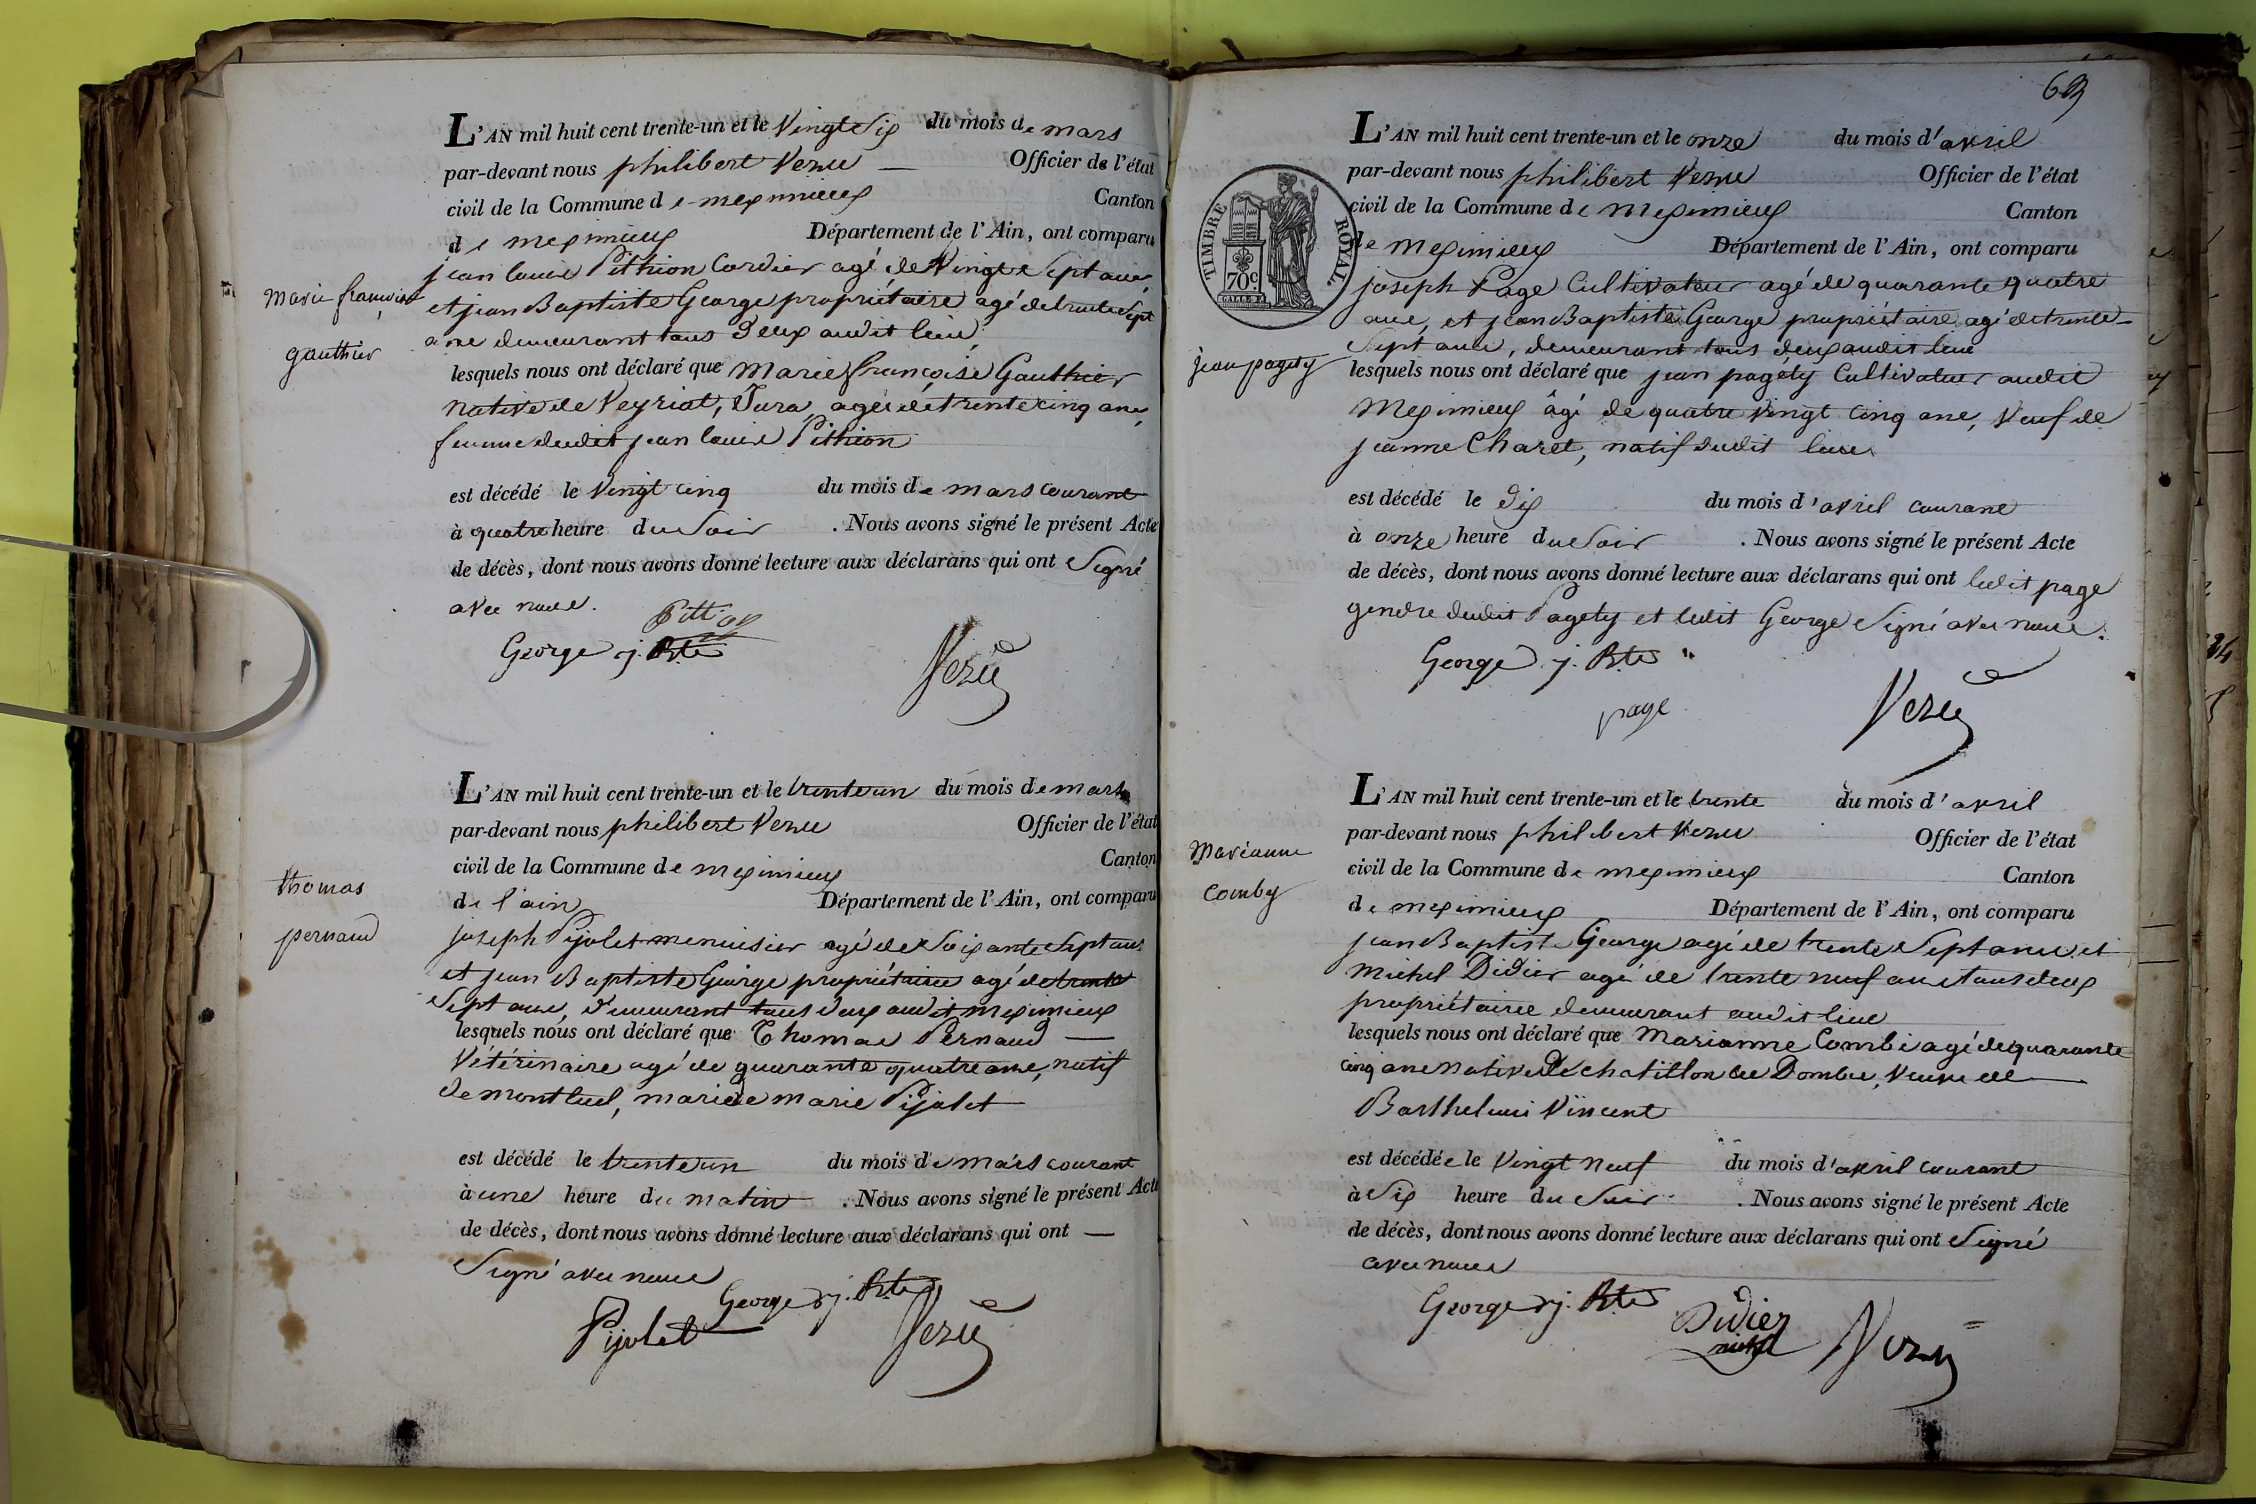 L'AN mil huit cent trente-un et le Vingt Six du mois de mars
par-devant nous philibert Vezu — Officier de l'état
civil de la Commune de meximieux Canton
de meximieux Département de l'Ain, ont comparu
jean louis Pithion Cordier agé de Vingt Sept ans,
et jean Baptiste George propriétaire agé de trente Sept
ans demeurant tous Deux audit lieu,
Marie françoise
gauthier
lesquels nous ont déclaré que Marie françoise Gauthier
native de Veyriat, Jura, agée de trente cinq ans,
femme dudit jean louis Pithion
est décédé le Vingt cinq du mois de mars courant
à quatre heure du Soir . Nous avons signé le présent Acte
de décès, dont nous avons donné lecture aux déclarans qui ont Signé
avec nous.
George j. Bte
Vezu
L'AN mil huit cent trente-un et le trente un du mois de mars
par-devant nous philibert Vezu Officier de l'état
civil de la Commune de meximieux Canton
de l'ain Département de l'Ain, ont comparu
thomas
pernaud
joseph Pijolet menuisier agé de Soixante Sept ans
et jean Baptiste George propriétaire agé de trente
Sept ans, demeurant tous deux audit meximieux
lesquels nous ont déclaré que Thomas Pernaud —
Vétérinaire agé de quarante quatre ans, natif
de montluel, marié de marie Pijolet
est décédé le trente un du mois de mars courant
à une heure du matin . Nous avons signé le présent Acte
de décès, dont nous avons donné lecture aux déclarans qui ont —
Signé avec nous
George j. Bte
Pijolet Vezu
69
L'AN mil huit cent trente-un et le onze du mois d'avril
par-devant nous philibert Vezu Officier de l'état
civil de la Commune de Meximieux Canton
de Meximieux Département de l'Ain, ont comparu
TIMBRE ROYAL
70c
joseph Page Cultivateur agé de quarante quatre
ans, et jean Baptiste George propriétaire agé de trente
Sept ans, demeurant tous deux audit lieu
jean pagety
lesquels nous ont déclaré que jean pagety Cultivateur audit
Meximieux âgé de quatre Vingt cinq ans, Veuf de
jeanne Charet, natif dudit lieu
est décédé le Dix du mois d'avril courant
à onze heure du Soir . Nous avons signé le présent Acte
de décès, dont nous avons donné lecture aux déclarans qui ont ledit page
gendre dudit Pagety et ledit George Signé avec nous.
George j. Bte
page Vezu
L'AN mil huit cent trente-un et le trente du mois d'avril
par-devant nous philibert Vezu Officier de l'état
civil de la Commune de meximieux Canton
de meximieux Département de l'Ain, ont comparu
Marianne
Comby
jean Baptiste George agé de trente Sept ans et
Michel Didier agé de trente neuf ans tous deux
propriétaires demeurant audit lieu
lesquels nous ont déclaré que Marianne Combi agé de quarante
cinq ans native De chatillon les Dombes, Veuve de
Barthelemi Vincent
est décédée le Vingt neuf du mois d'avril courant
à Six heure du Soir . Nous avons signé le présent Acte
de décès, dont nous avons donné lecture aux déclarans qui ont Signé
avec nous
George j. Bte
Didier
michel
Vezu